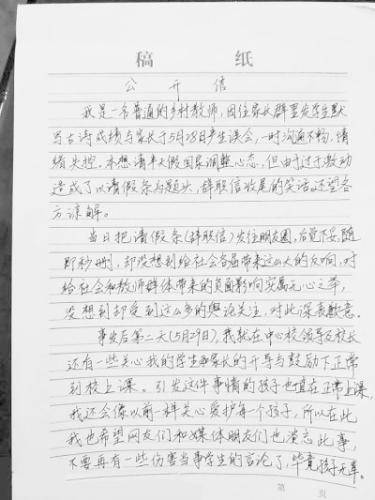 稿 纸
公开信
我是一名普通的乡村教师,因往家长群里发学生默
写古诗成绩与家长于5月28日产生误会,一时沟通不畅,情
绪失控。本想请半天假回家调整心态,但由于过于激动
造成了以请假条为题头,辞职信收尾的笑话。还望各
方谅解。
当日把请假条(辞职信)发往朋友圈,后觉不妥,随
即秒删,却没想到给社会各层带来这么大的反响,对
给社会和教师群体带来的负面影响实属无心之举,
没想到却受到这么多的舆论关注,对此深表歉意。
事发后第二天(5月29日),我就在中心校领导及校长
还有一些关心我的学生和家长的开导与鼓励下正常
到校上课。引发这件事情的孩子也一直在正常上课,
我还会像以前一样关心爱护每个孩子,所以在此
我也希望网友们和媒体朋友们也淡忘此事,
不要再有一些伤害当事学生的言论了,毕竟孩子无辜。
第 页